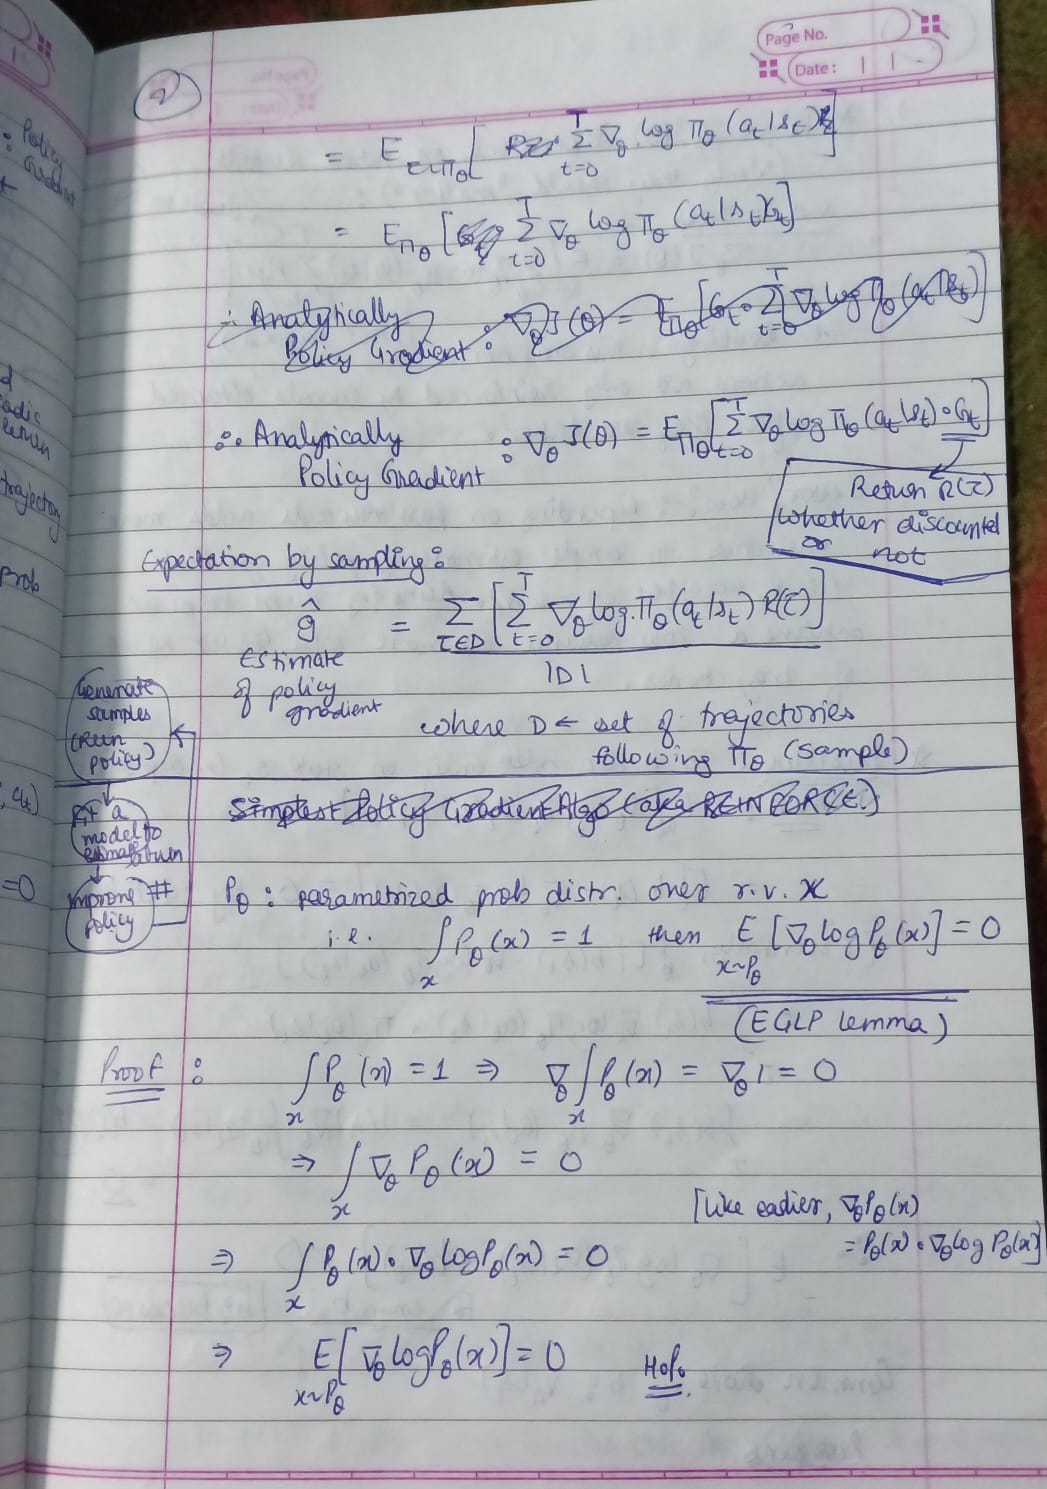 Page No.
Date:
2
= E_{τ~π_θ} [ Σ_{t=0}^{T} ∇_θ log π_θ (a_t|s_t) ]
= E_{π_θ} [ Σ_{t=0}^{T} ∇_θ log π_θ (a_t|s_t) G_t ]
∴ Analytically
Policy Gradient : ∇_θ J(θ) = E_{π_θ} [ G_t · Σ_{t=0}^{T} ∇_θ log π_θ (a_t|s_t) ]
∴ Analytically : ∇_θ J(θ) = E_{π_θ} [ Σ_{t=0}^{T} ∇_θ log π_θ (a_t|s_t) · G_t ]
Policy Gradient
Return R(τ)
whether discounted
or not
Expectation by sampling:
ĝ = Σ_{τ∈D} [ Σ_{t=0}^{T} ∇_θ log π_θ (a_t|s_t) R(τ) ]
|D|
Estimate
of policy
gradient
where D ← set of trajectories
following π_θ (sample)
Generate
samples
(Run
policy)
Fit a
model to
estimate
return
Improve #
policy
Simplest Policy Gradient Algo (aka REINFORCE.)
P_θ : parametrized prob distr. over r.v. x
i.e. ∫_x P_θ(x) = 1 then E_{x~P_θ} [∇_θ log P_θ(x)] = 0
(EGLP lemma)
Proof : ∫_x P_θ(x) = 1 ⇒ ∇_θ ∫_x P_θ(x) = ∇_θ 1 = 0
⇒ ∫_x ∇_θ P_θ(x) = 0
[Like earlier, ∇_θ P_θ(x)
= P_θ(x) · ∇_θ log P_θ(x)]
⇒ ∫_x P_θ(x) · ∇_θ log P_θ(x) = 0
⇒ E_{x~P_θ} [∇_θ log P_θ(x)] = 0
: Policy
Gradient
return
trajectory
prob
a_t)
=0